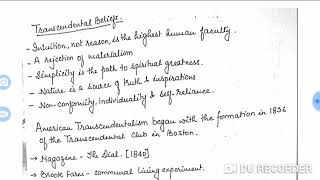 Transcendental Beliefs.
- Intuition, not reason, is the highest human faculty.
- A rejection of materialism
- Simplicity is the path to spiritual greatness.
- Nature is a source of truth & inspirations
- Non-conformity, individuality & self-Reliance.
American Transcendentalism began with the formation in 1836
of the Transcendental Club in Boston.
→ Magazine - The Dial. [1840]
→ Brook Farm - communal living experiment.
DU RECORDER